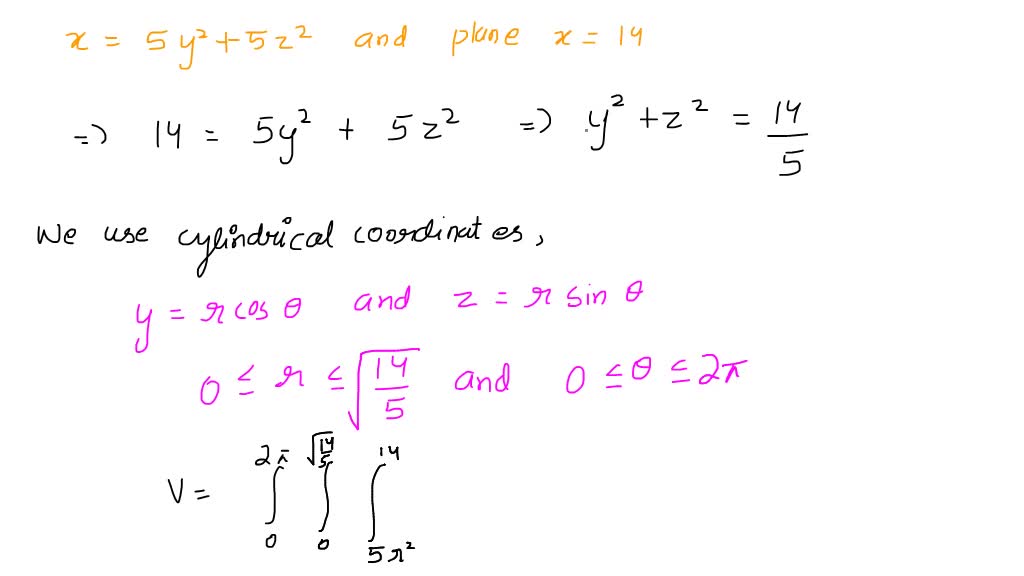 x = 5y² + 5z² and plane x = 14
=> 14 = 5y² + 5z² => y² + z² = 14/5
We use cylindrical coordinates,
y = r cos θ and z = r sin θ
0 ≤ r ≤ √(14/5) and 0 ≤ θ ≤ 2π
V = ∫₀^{2π} ∫₀^{√(14/5)} ∫_{5r²}^{14}